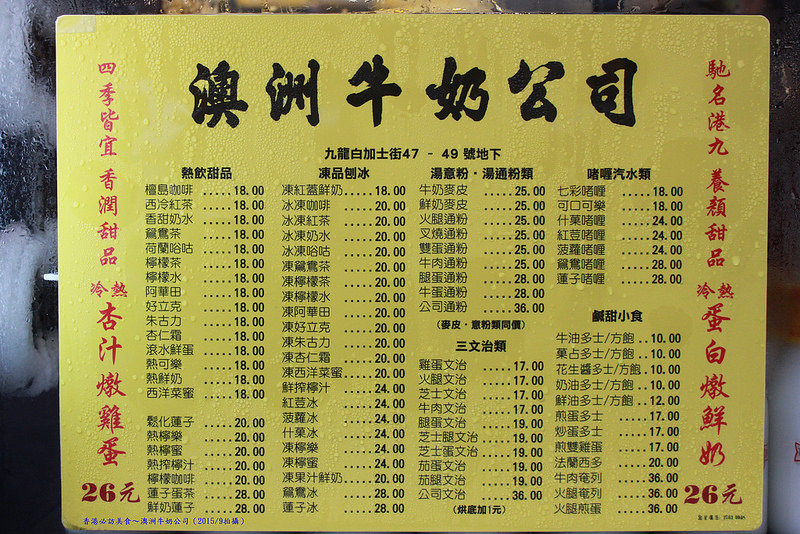 澳洲牛奶公司
九龍白加士街47 - 49 號地下
四季皆宜 香潤甜品
冷熱
杏汁燉雞蛋
26元
熱飲甜品
檀島咖啡 .....18.00
西冷紅茶 .....18.00
香甜奶水 .....18.00
鴛鴦茶 .....18.00
荷蘭哈咕 .....18.00
檸檬茶 .....18.00
檸檬水 .....18.00
阿華田 .....18.00
好立克 .....18.00
朱古力 .....18.00
杏仁霜 .....18.00
滾水鮮蛋 .....18.00
熱可樂 .....18.00
熱鮮奶 .....18.00
西洋菜蜜 .....18.00
鬆化蓮子 .....20.00
熱檸樂 .....20.00
熱檸蜜 .....20.00
熱搾檸汁 .....20.00
檸樂咖啡 .....20.00
蓮子蛋茶 .....28.00
鮮奶蓮子 .....28.00
凍品刨冰
凍紅蓋鮮奶 .....18.00
冰凍咖啡 .....20.00
冰凍紅茶 .....20.00
冰凍奶水 .....20.00
冰凍哈咕 .....20.00
凍鴛鴦茶 .....20.00
凍檸檬茶 .....20.00
凍檸檬水 .....20.00
凍阿華田 .....20.00
凍好立克 .....20.00
凍朱古力 .....20.00
凍杏仁霜 .....20.00
凍西洋菜蜜 .....20.00
鮮搾檸汁 .....24.00
紅荳冰 .....24.00
菠蘿冰 .....24.00
什菓冰 .....24.00
凍檸樂 .....24.00
凍檸蜜 .....24.00
凍果汁鮮奶 .....24.00
鴛鴦冰 .....28.00
蓮子冰 .....28.00
湯意粉‧湯通粉類
牛奶麥皮 .....25.00
鮮奶麥皮 .....25.00
火腿通粉 .....25.00
叉燒通粉 .....25.00
雙蛋通粉 .....25.00
牛肉通粉 .....25.00
腿蛋通粉 .....28.00
牛蛋通粉 .....28.00
公司通粉 .....36.00
(麥皮‧意粉類同價)
三文治類
雞蛋文治 .....17.00
火腿文治 .....17.00
芝士文治 .....17.00
牛肉文治 .....17.00
腿蛋文治 .....19.00
芝士腿文治 .....19.00
芝士蛋文治 .....19.00
茄蛋文治 .....19.00
茄腿文治 .....19.00
公司文治 .....36.00
(烘底加1元)
啫喱汽水類
七彩啫喱 .....18.00
可口可樂 .....18.00
什菓啫喱 .....24.00
紅荳啫喱 .....24.00
菠蘿啫喱 .....24.00
鴛鴦啫喱 .....28.00
蓮子啫喱 .....28.00
鹹甜小食
牛油多士/方飽 ..10.00
菓占多士/方飽 ..10.00
花生醬多士/方飽 ..10.00
奶油多士/方飽 ..10.00
鮮油多士/方飽 ..12.00
煎蛋多士 .....17.00
炒蛋多士 .....17.00
煎雙雞蛋 .....17.00
法蘭西多 .....20.00
牛肉奄列 .....36.00
火腿奄列 .....36.00
火腿煎蛋 .....36.00
馳名港九 養顏甜品
冷熱
蛋白燉鮮奶
26元
香港必訪美食~澳洲牛奶公司 (2015/9拍攝)